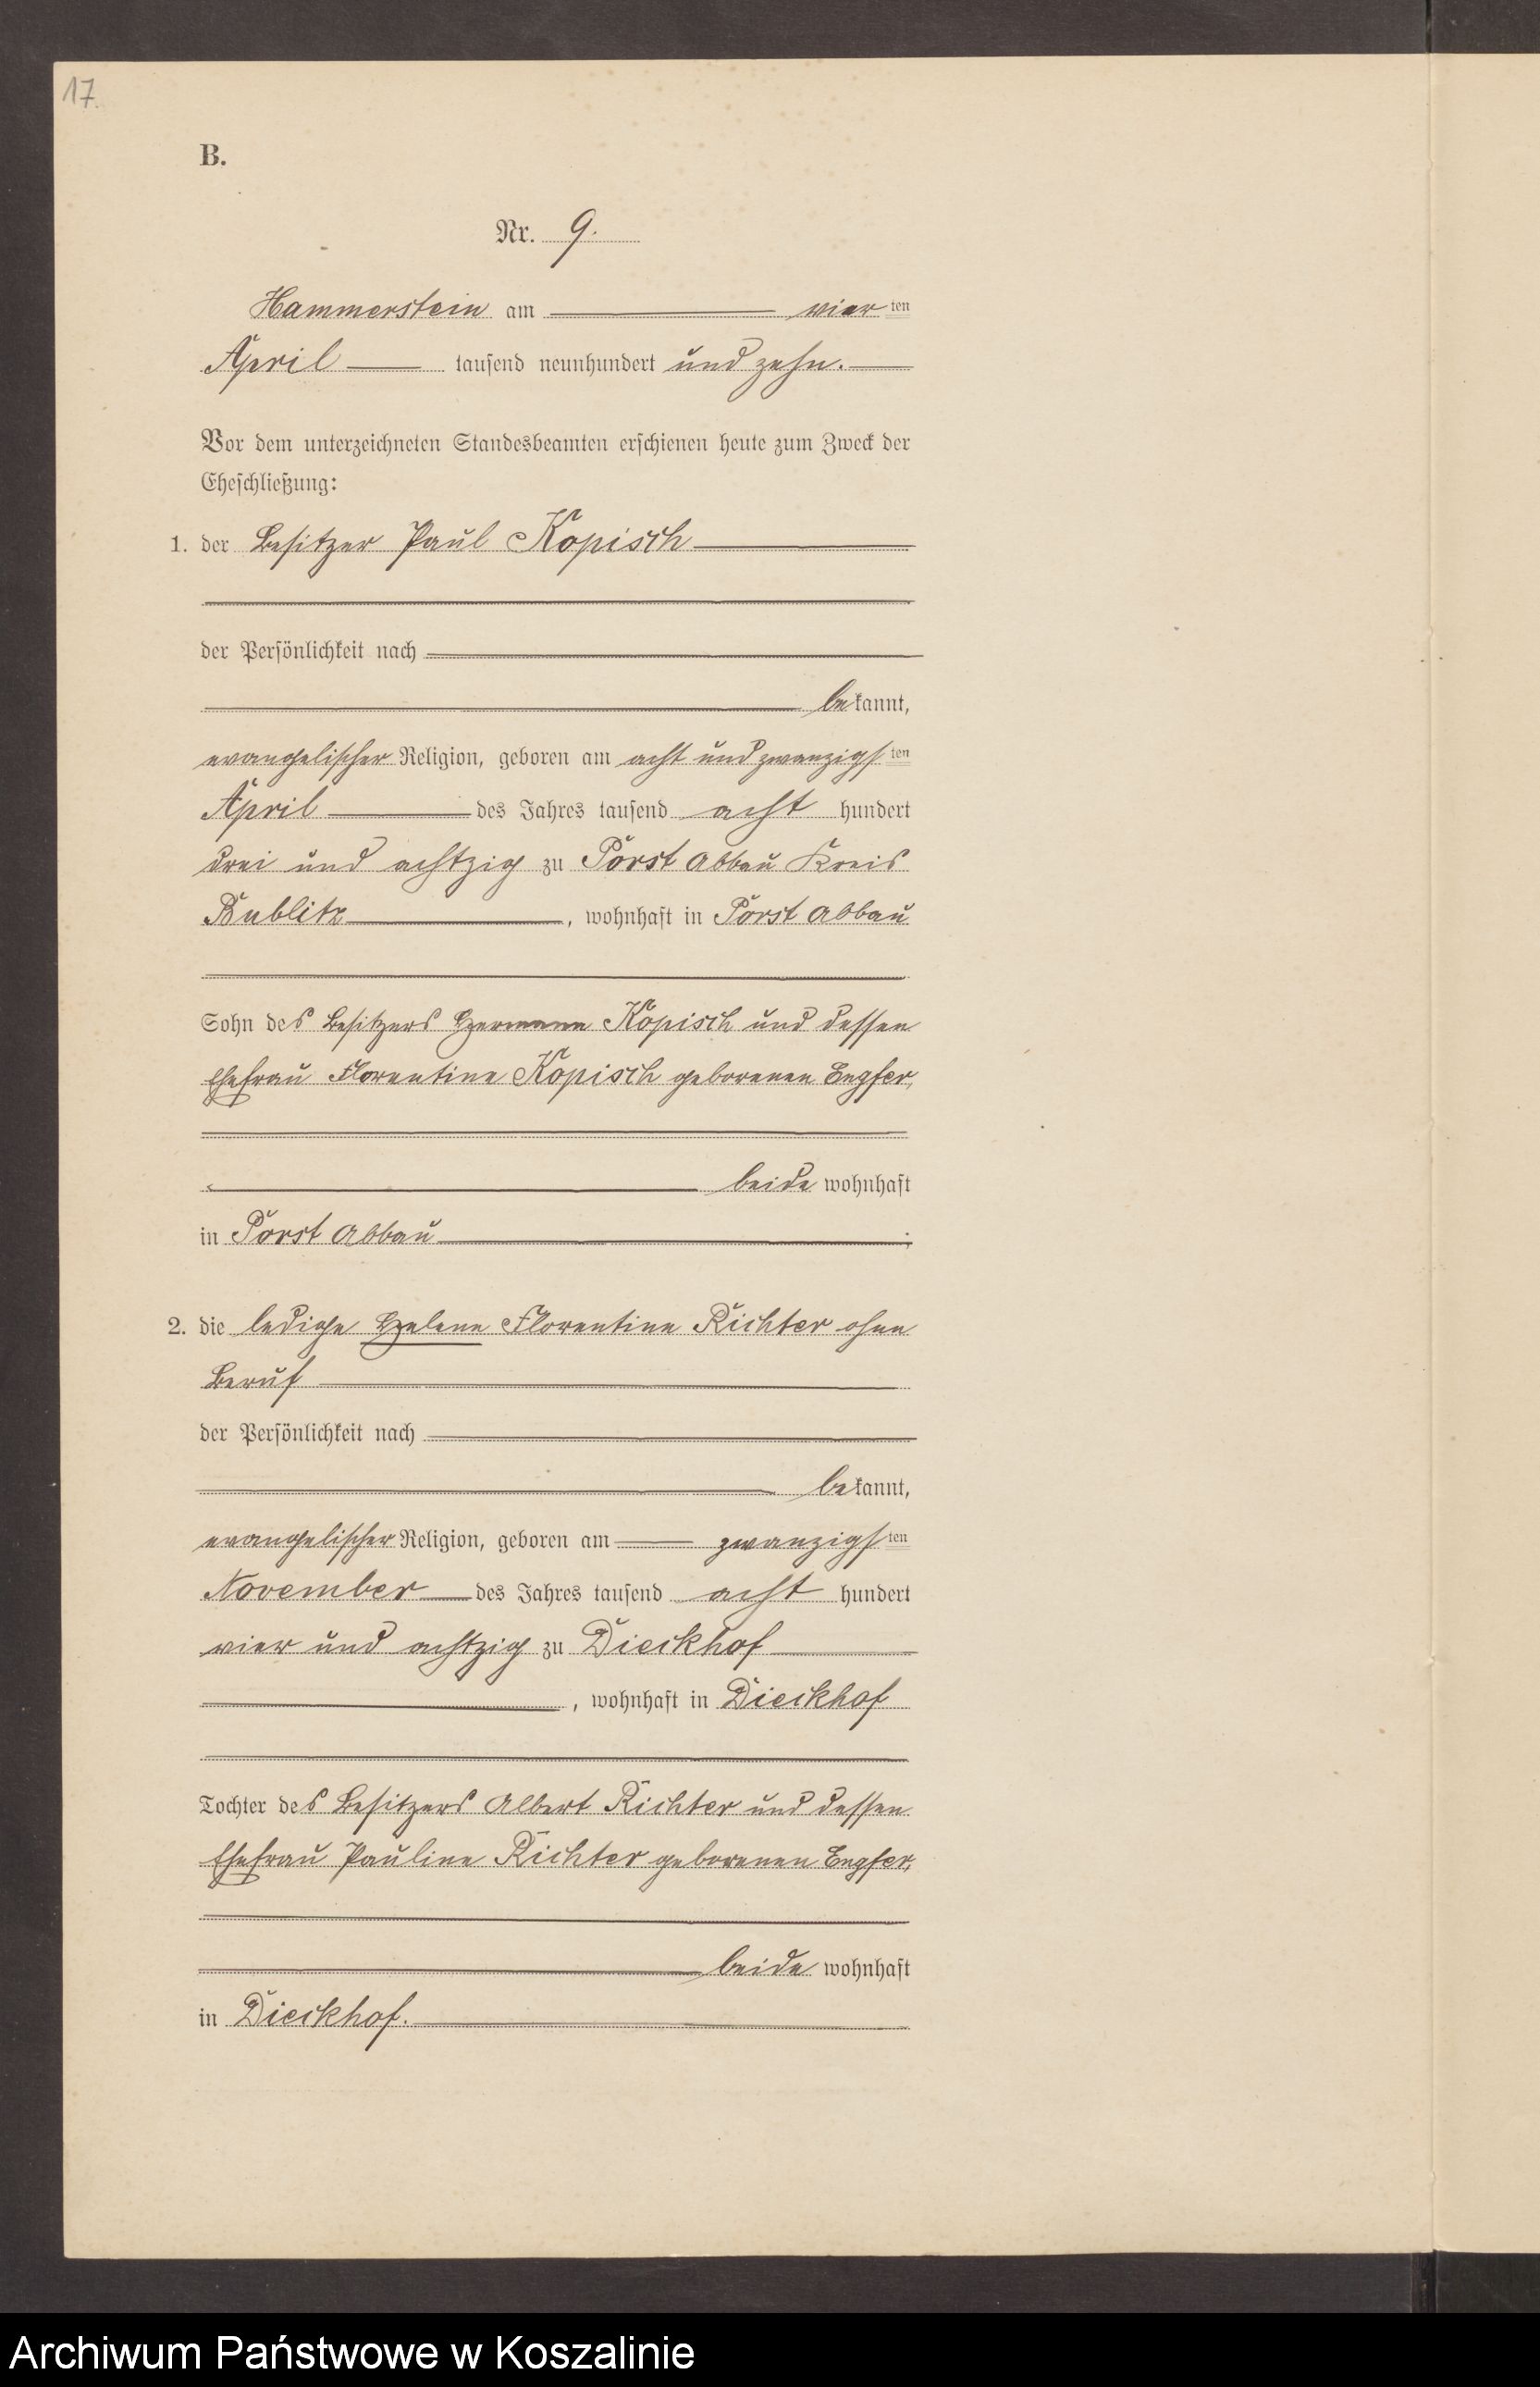 17.
B.
Nr. 9.
Hammerstein am vierten
April tausend neunhundert und zehn.
Vor dem unterzeichneten Standesbeamten erschienen heute zum Zweck der
Eheschließung:
1. der Besitzer Paul Kopisch
der Persönlichkeit nach
bekannt,
evangelischer Religion, geboren am acht und zwanzigsten
April des Jahres tausend acht hundert
drei und achtzig zu Porst Abbau Kreis
Bublitz, wohnhaft in Porst Abbau
Sohn des Besitzers Hermann Kopisch und dessen
Ehefrau Florentine Kopisch geborenen Engfer,
beide wohnhaft
in Porst Abbau;
2. die ledige Helene Florentine Richter ohne
Beruf
der Persönlichkeit nach
bekannt,
evangelischer Religion, geboren am zwanzigsten
November des Jahres tausend acht hundert
vier und achtzig zu Dieckhof
, wohnhaft in Dieckhof
Tochter des Besitzers Albert Richter und dessen
Ehefrau Pauline Richter geborenen Engfer,
beide wohnhaft
in Dieckhof.
Archiwum Państwowe w Koszalinie